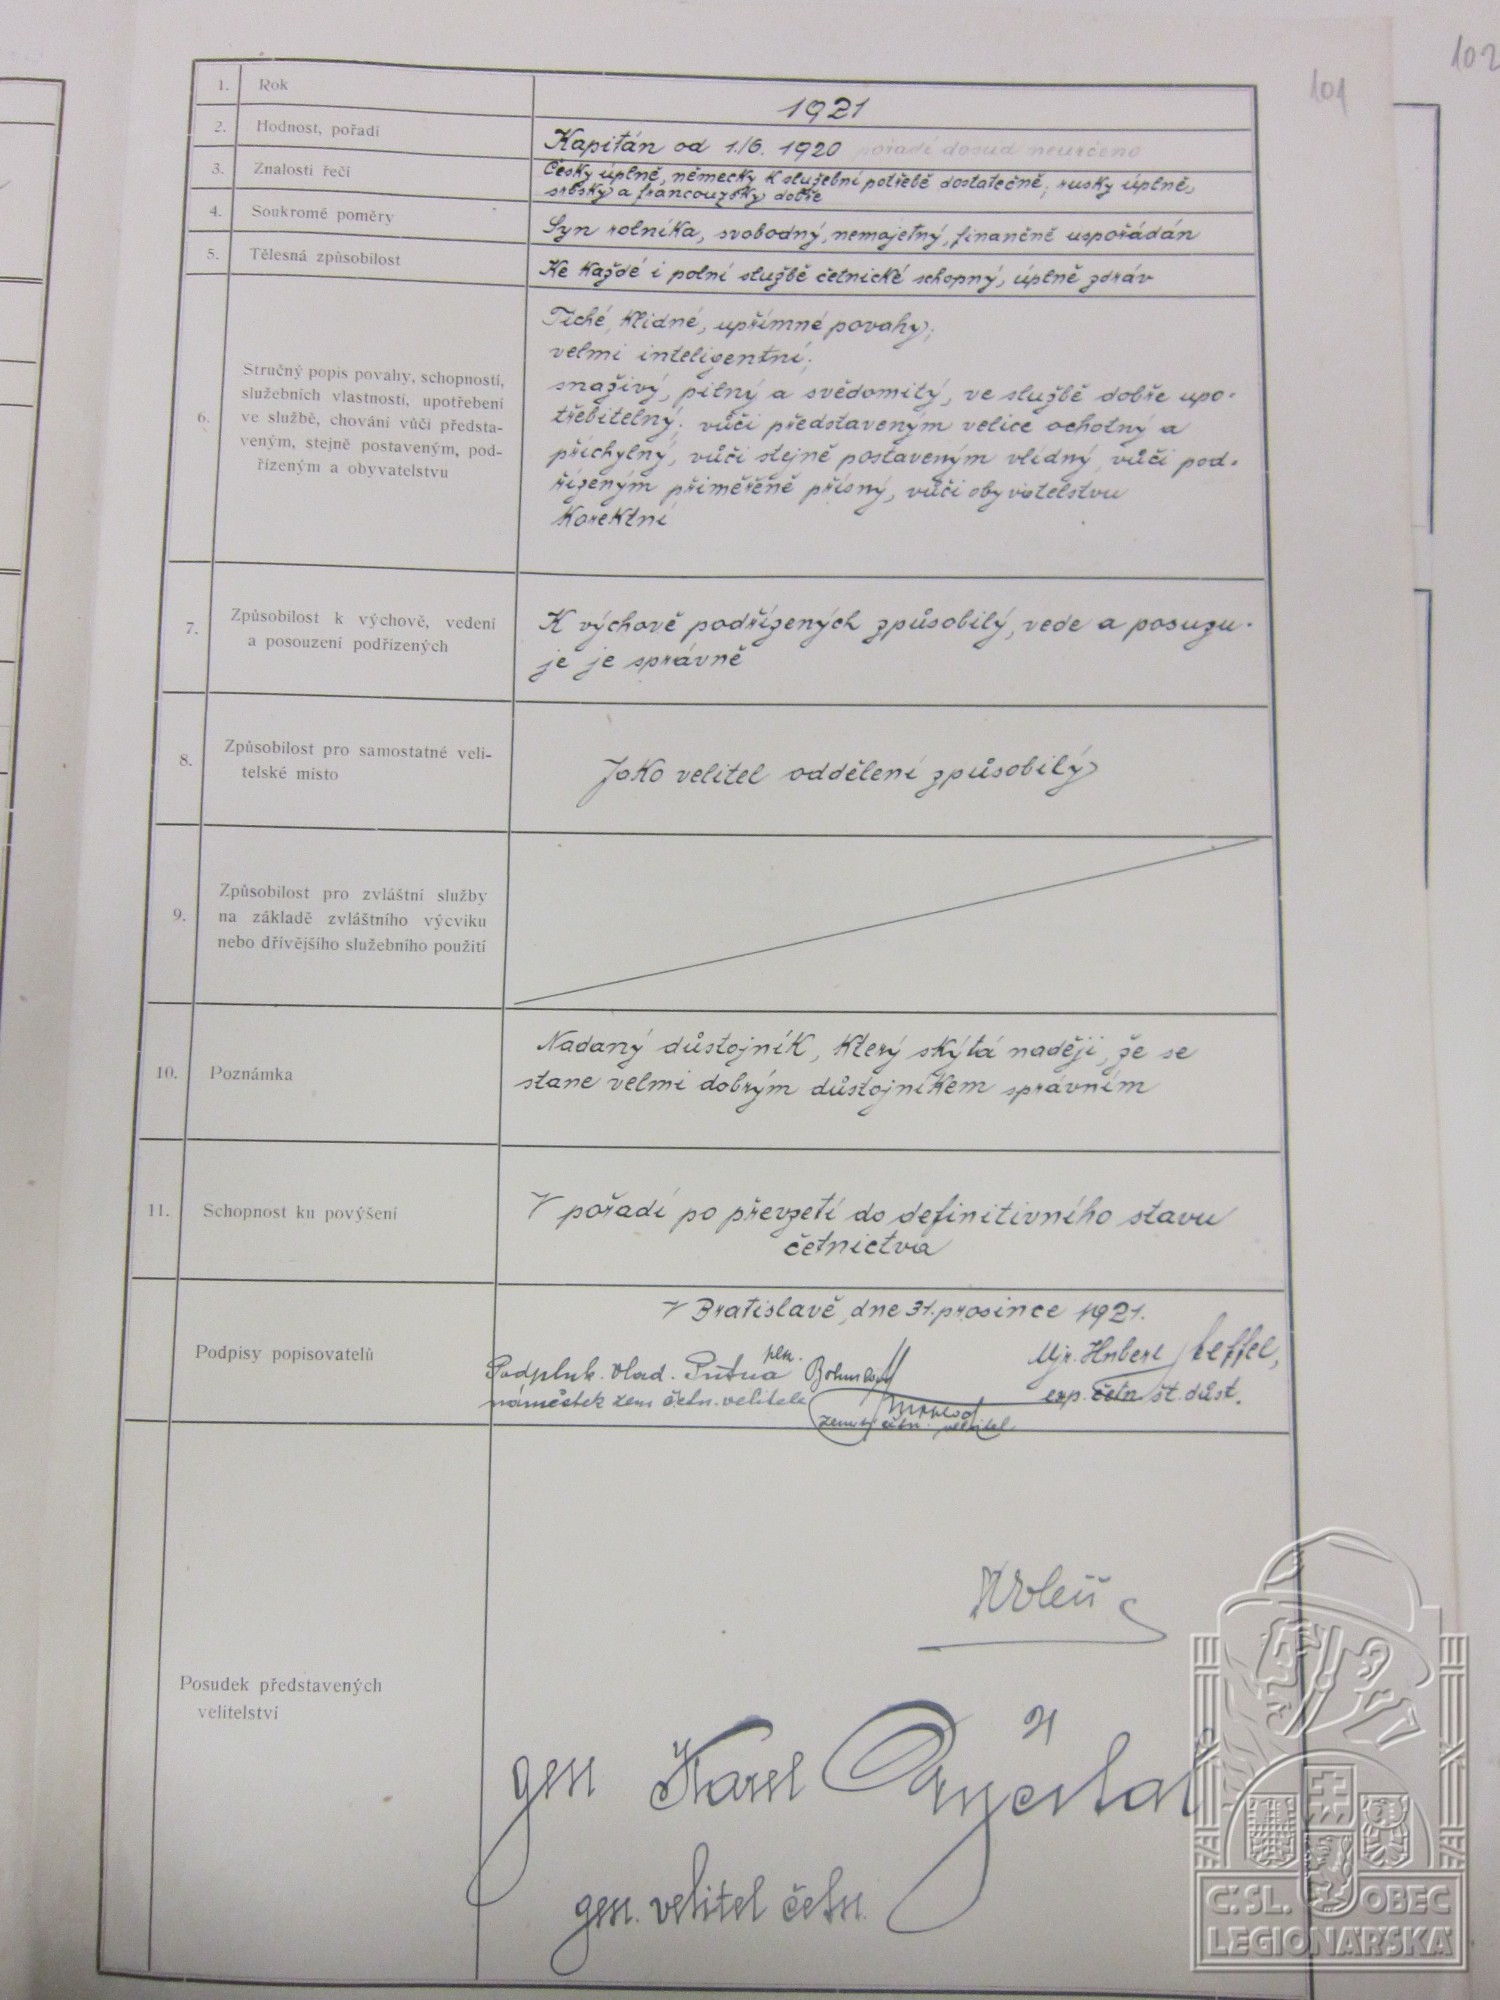 102
101
1. Rok
1921
2. Hodnost, pořadí
Kapitán od 1./6. 1920 pořadí dosud neurčeno
3. Znalosti řečí
Česky úplně, německy k služební potřebě dostatečně, rusky úplně,
srbsky a francouzsky dobře
4. Soukromé poměry
Syn rolníka, svobodný, nemajetný, finančně uspořádán
5. Tělesná způsobilost
Ke každé i polní službě četnické schopný, úplně zdráv
6. Stručný popis povahy, schopností,
služebních vlastností, upotřebení
ve službě, chování vůči představeným,
stejně postaveným, pod-
řízeným a obyvatelstvu
Tiché, klidné, upřímné povahy;
velmi inteligentní;
snaživý, pilný a svědomitý, ve službě dobře upo-
třebitelný; vůči představeným velice ochotný a
příchylný, vůči stejně postaveným vlídný, vůči pod-
řízeným přiměřeně přísný, vůči obyvatelstvu
korektní
7. Způsobilost k výchově, vedení
a posouzení podřízených
K výchově podřízených způsobilý, vede a posuzu-
je je správně
8. Způsobilost pro samostatné veli-
telské místo
Jako velitel oddělení způsobilý
9. Způsobilost pro zvláštní služby
na základě zvláštního výcviku
nebo dřívějšího služebního použití
10. Poznámka
Nadaný důstojník, který skýtá naději, že se
stane velmi dobrým důstojníkem správním
11. Schopnost ku povýšení
V pořadí po převzetí do definitivního stavu
četnictva
Podpisy popisovatelů
V Bratislavě, dne 31. prosince 1921.
Podpluk. Vlad. plk. Mjr. Hubert
náměstek zem četn. velitele exp. četn št. důst.
zemský četn. velitel
Posudek představených
velitelství
gen Karel
gen. velitel četn.
Č.SL. OBEC
LEGIONÁŘSKÁ